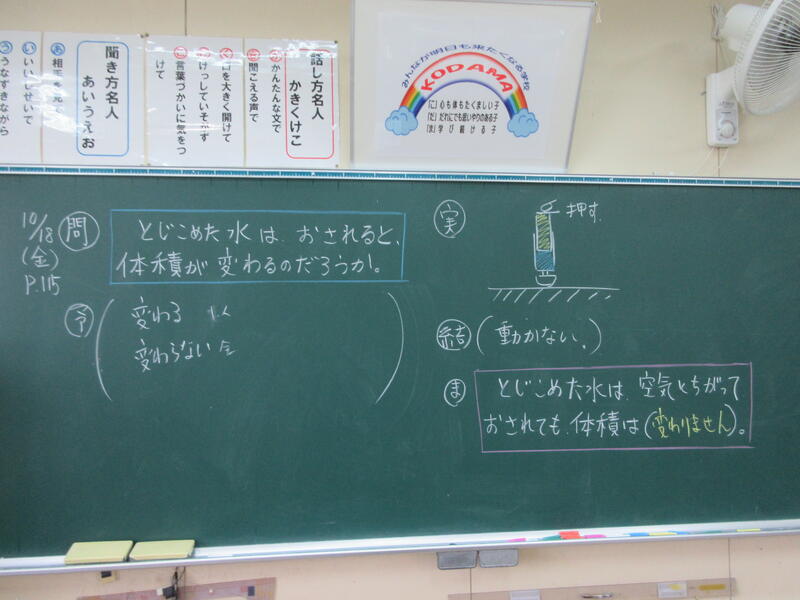 話し方名人
かきくけこ
か かんたんな文で
き 聞こえる声で
く 口を大きく開けて
け けっしていそがず
こ 言葉づかいに気をつ
けて
聞き方名人
あいうえお
あ 相手を見
い いいしせいで
う うなずきながら
みんなが明日も来たくなる学校
KODAMA
「こ」心も体もたくましい子
「だ」だれにでも思いやりのある子
「ま」学び続ける子
10/18
(金)
P.115
問
とじこめた水は、おされると、
体積が変わるのだろうか。
予
変わる
変わらない
実
押す
結 (動かない。)
ま
とじこめた水は、空気とちがって
おされても、体積は(変わりません)。